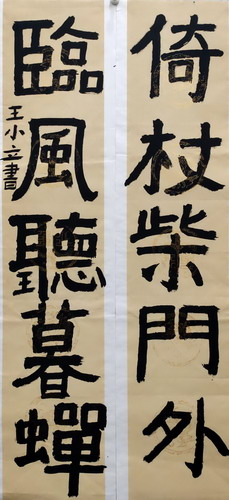 倚杖柴門外
臨風聽暮蟬
王小立書